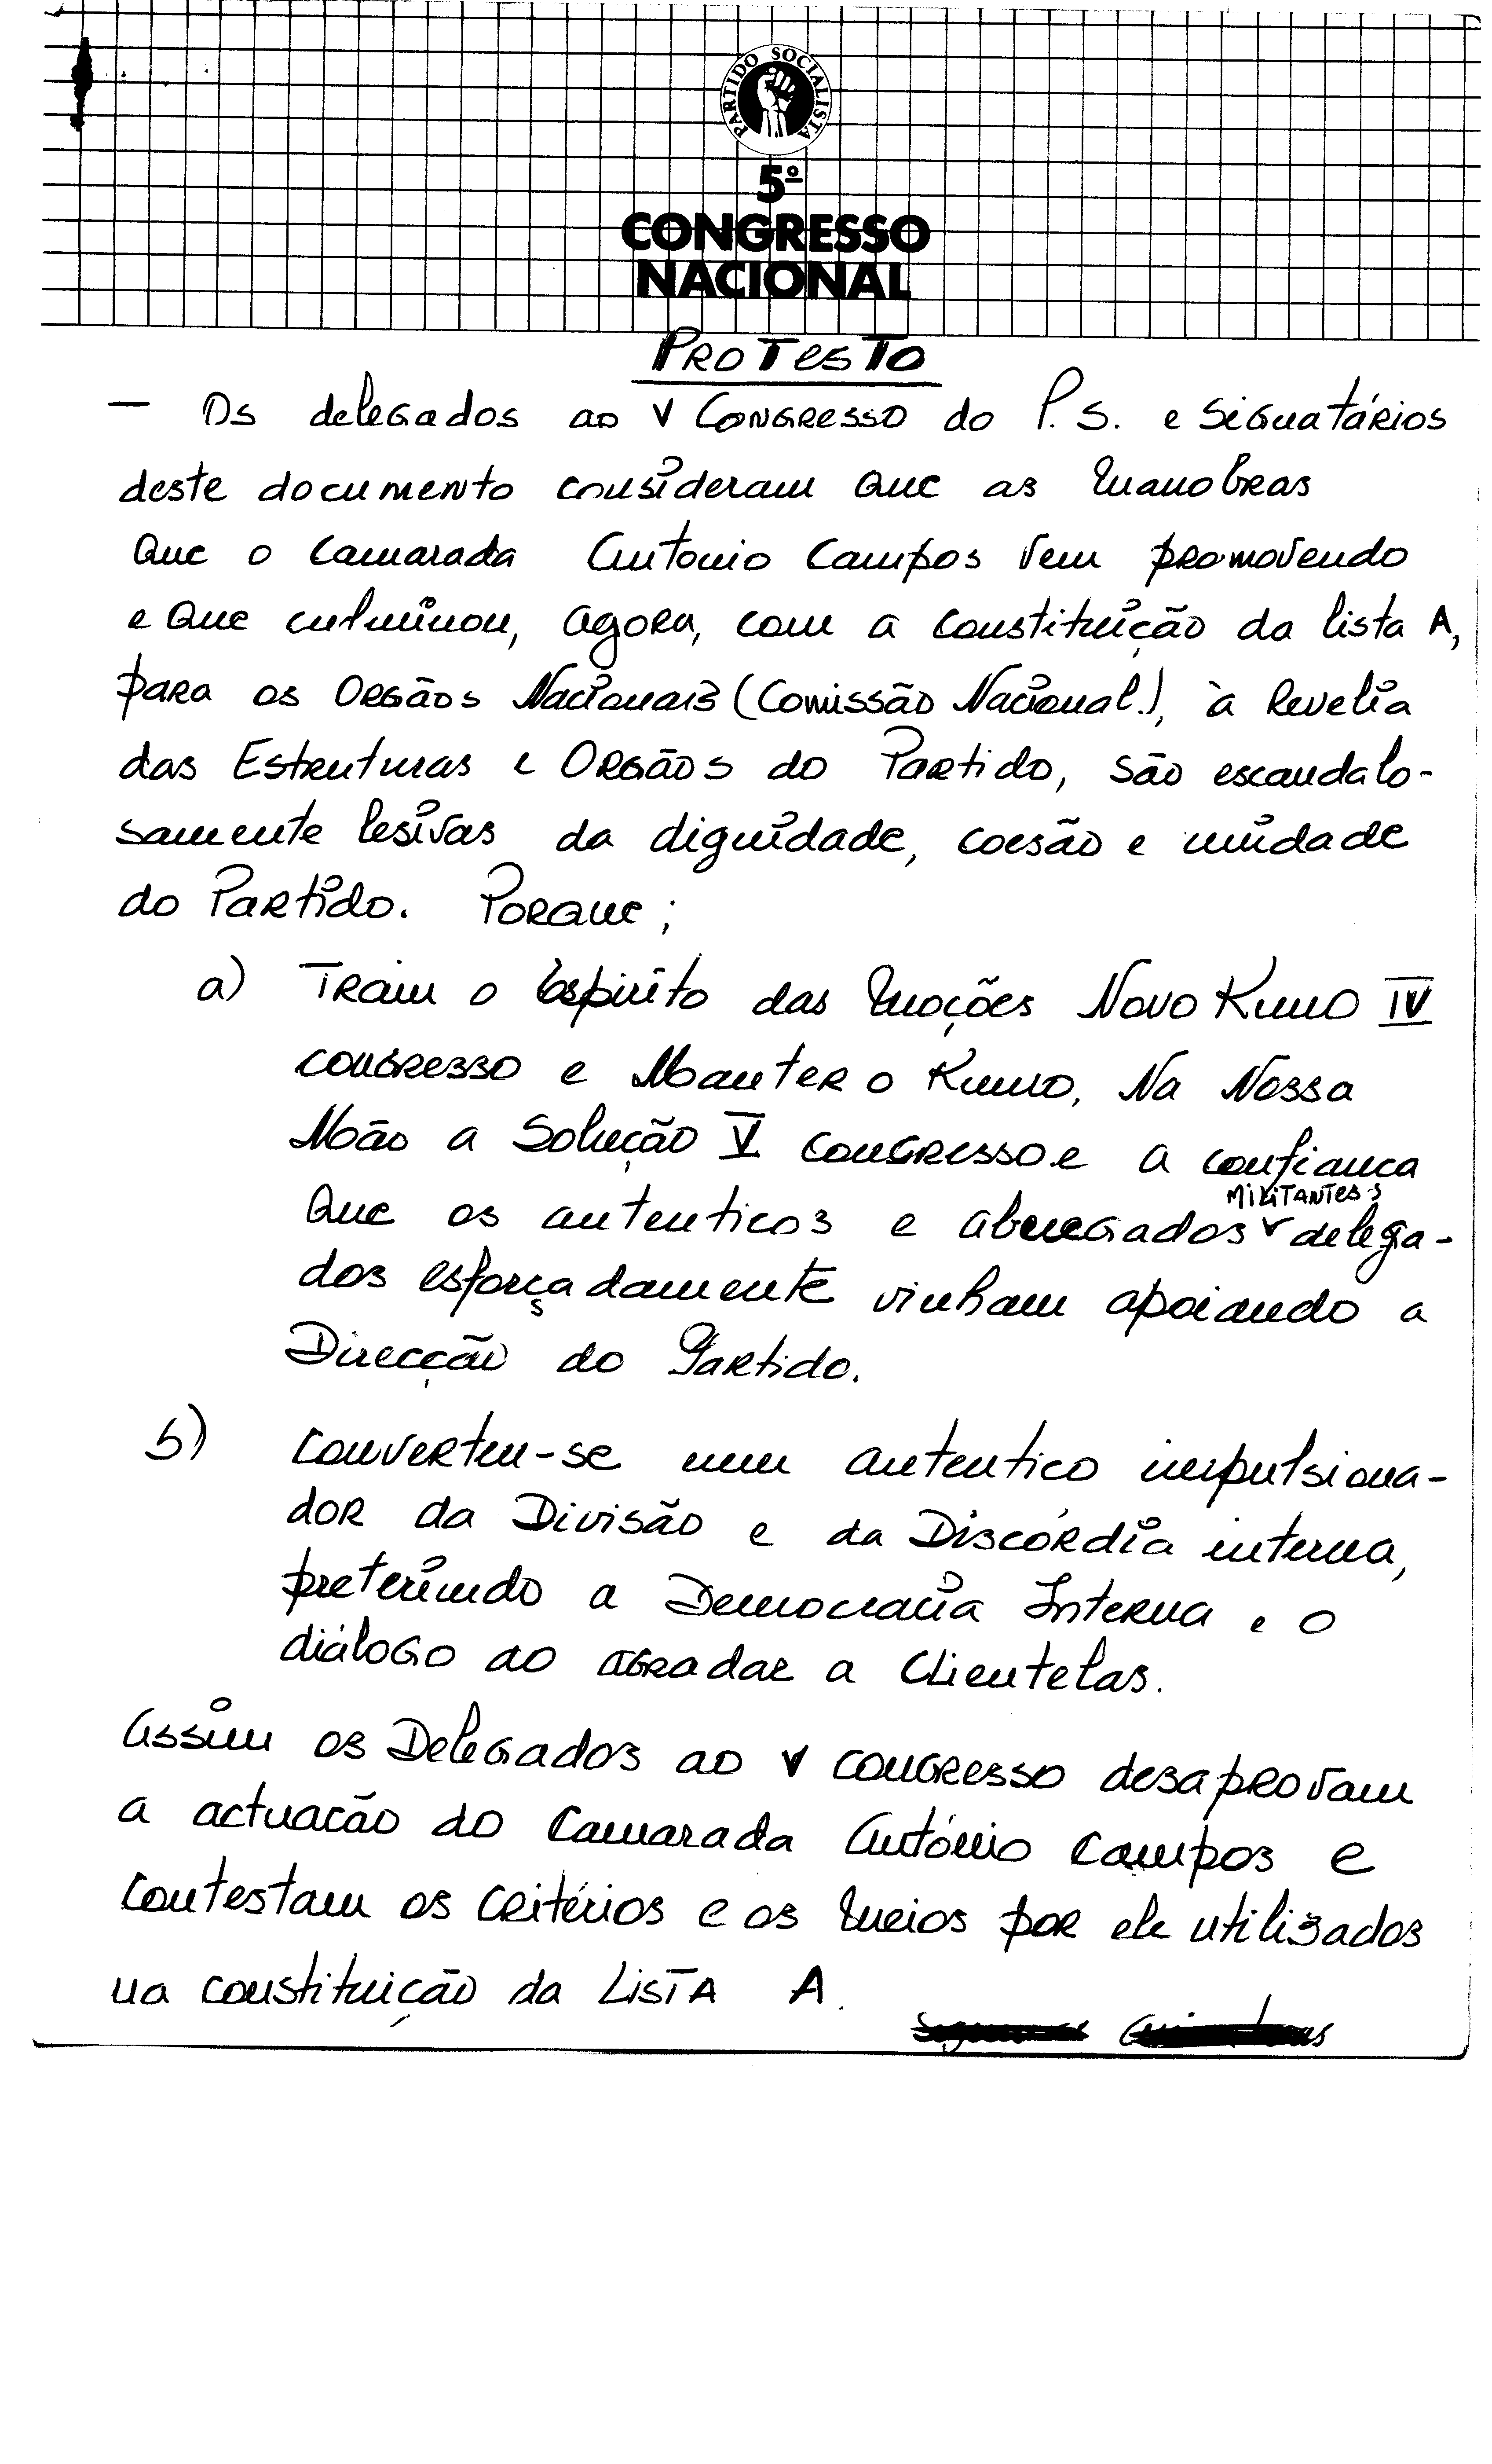 PARTIDO SOCIALISTA
5º
CONGRESSO
NACIONAL
PROTESTO
— Os delegados ao V Congresso do P.S. e signatários
deste documento consideram que as manobras
que o Camarada Antonio Campos vem promovendo
e que culminou, agora, com a constituição da lista A,
para os Orgãos Nacionais (Comissão Nacional.), à Revelia
das Estruturas e Orgãos do Partido, são escandalo-
samente lesivas da dignidade, coesão e unidade
do Partido. Porque;
a) Traiu o Espirito das Moções Novo Rumo IV
congresso e Manter o Rumo, Na Nossa
Mão a Solução V congresso e a confianca
MILITANTES
que os autenticos e abnegados v delega-
dos esforçadamente vinham apoiando a
Direcção do Partido.
b) Converteu-se num autentico impulsiona-
dor da Divisão e da Discórdia interna,
preterindo a Democracia Interna e o
diálogo ao agradar a Clientelas.
Assim os Delegados ao V congresso desaprovam
a actuacão do Camarada António Campos e
contestam os critérios e os meios por ele utilisados
na constituição da LISTA A.